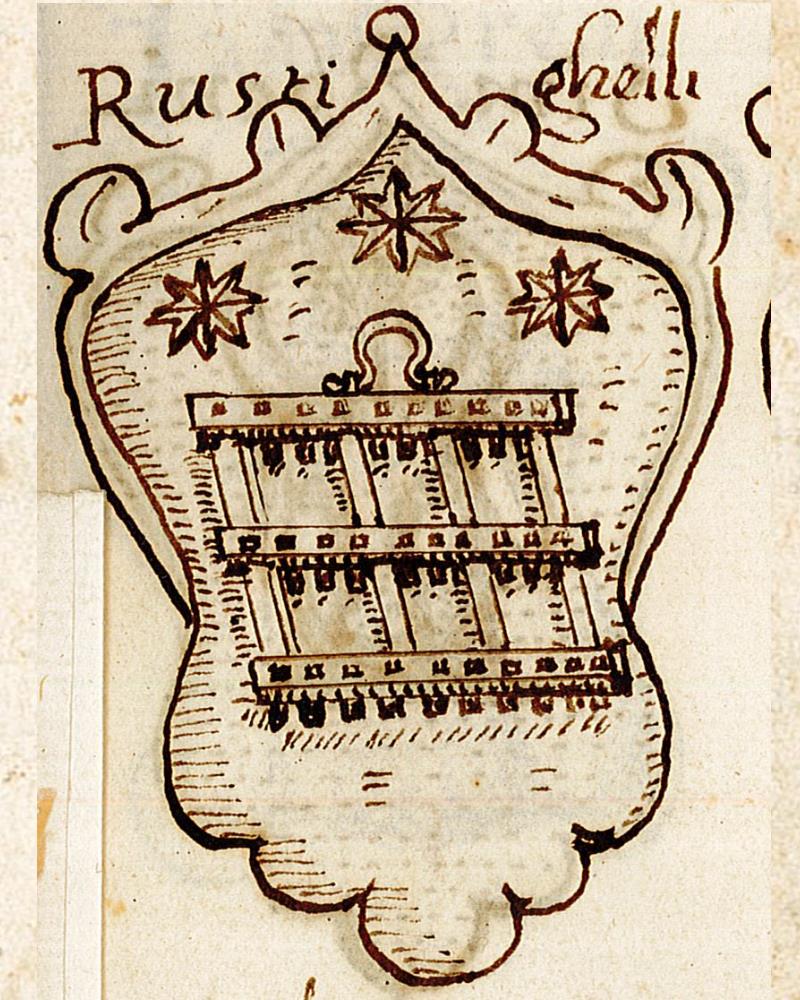 Rusti ghelli